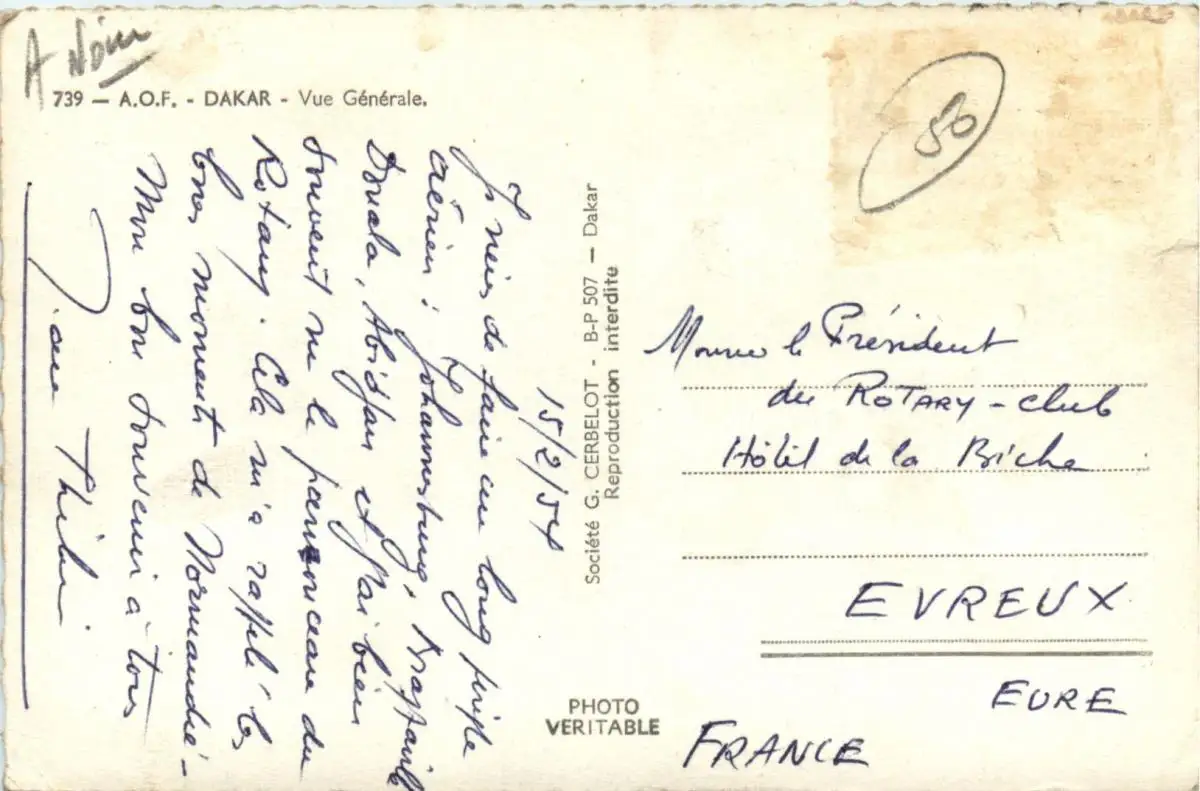 A
739 — A.O.F. - DAKAR - Vue Générale.
50
15/2/54
Je viens de faire un long périple
aérien : Johannesburg, Brazzaville
Douala, Abidjan et j'ai bien
souvent vu le panonceau du
Rotary. Cela m'a rappelé les
bons moments de Normandie -
Mon bon souvenir à tous
Société G. CERBELOT - B-P 507 — Dakar
Reproduction interdite
PHOTO
VERITABLE
le Président
du ROTARY-club
Hôtel de la Biche
EVREUX
EURE
FRANCE